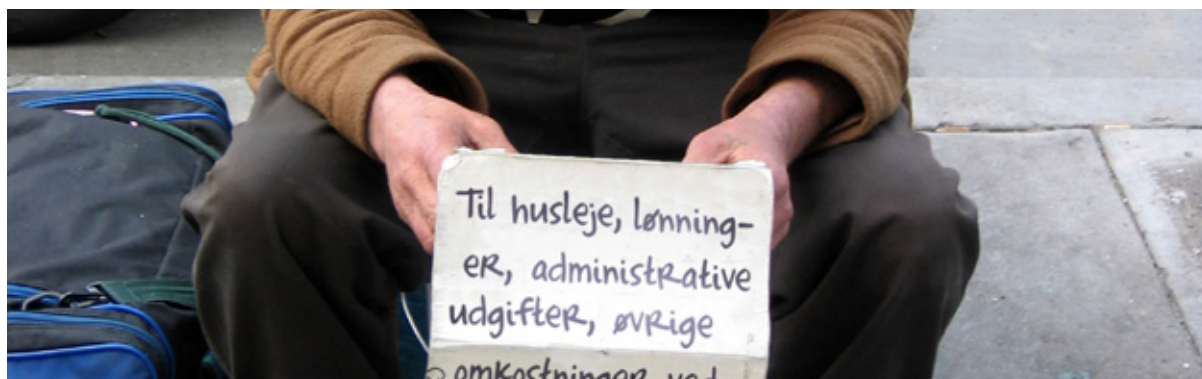 Til husleje, lønning-
er, administrative
udgifter, øvrige
omkostninger ved